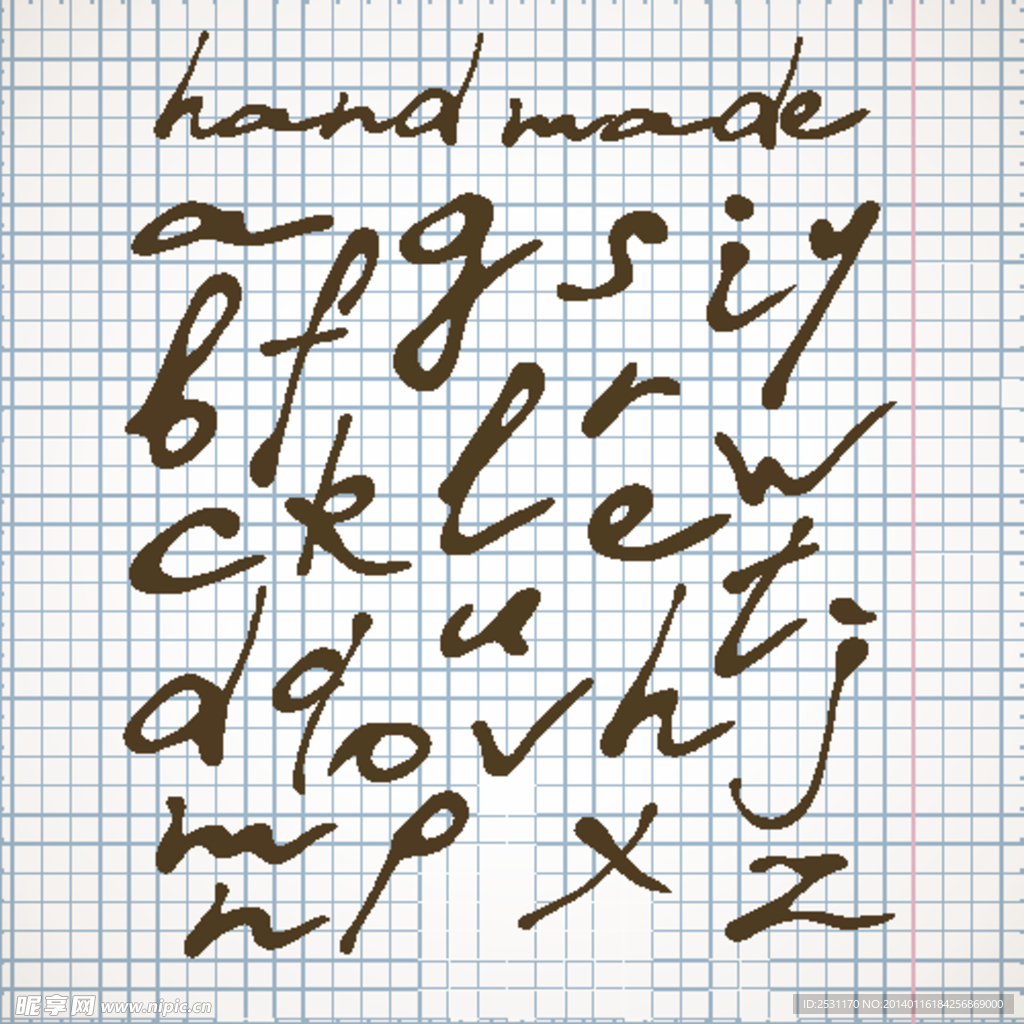 hand made
a f g s i y
b l r w
c k e t
d q u h j
o v
m p x z
n
昵享网 www.nipic.cn
ID:2531170 NO:20140116184256869000